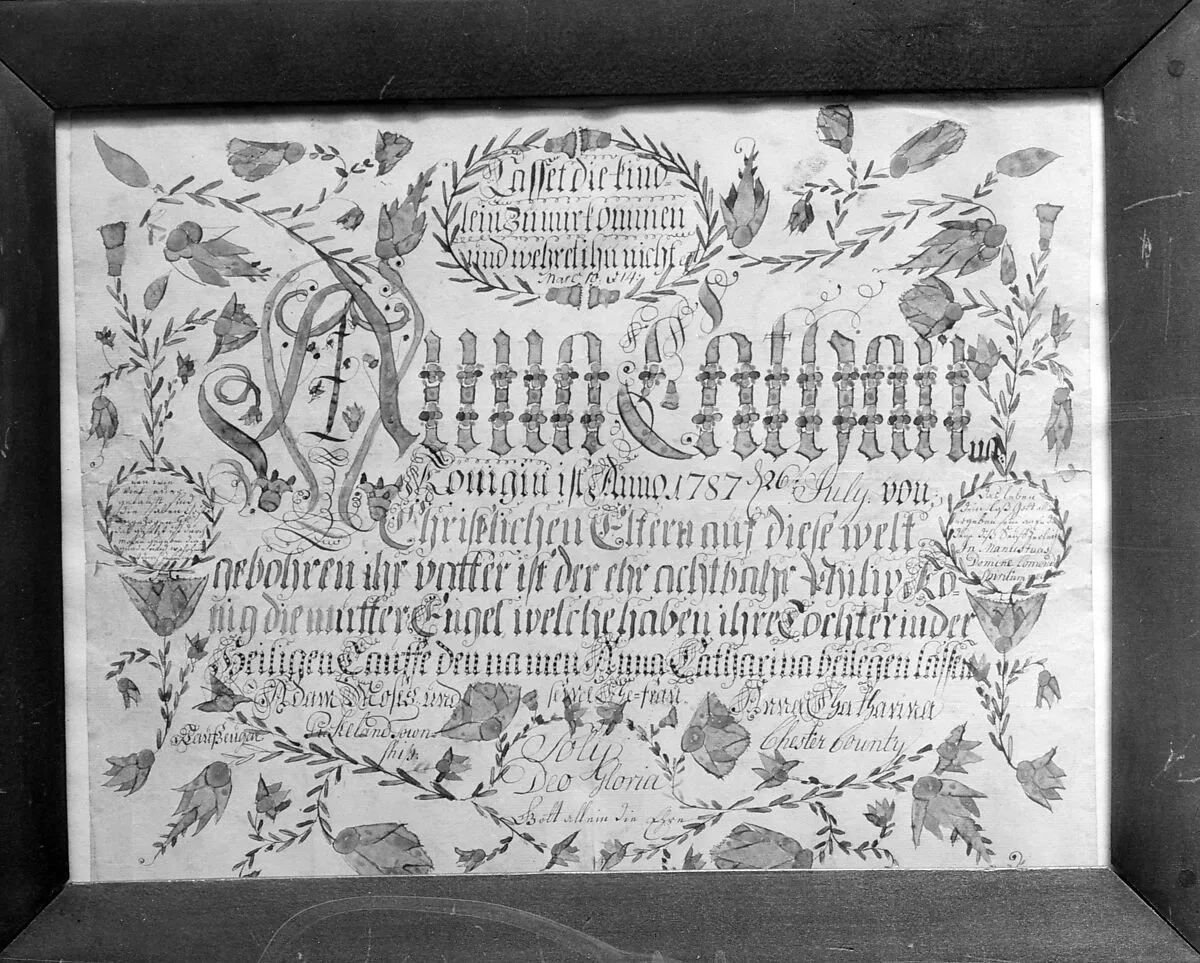 Lasset die kind-
lein zu mir kommen
und wehret ihn nicht
Marc. 10. v. 14.
Anna Catharina
Königin ist Anno 1787 d 26t July, von
Christlichen Eltern auf diese welt
gebohren ihr vatter ist der ehr achtbahr Philip Kö-
nig die mutter Engel welche haben ihre Tochter in der
Heiligen Tauffe den namen Anna Catharina beilegen lassen
Adam Moses und seine Ehe-frau Anna Chatharina
Taufzeugen
Pickeland town-
ship
Chester County
das leben
In Manus tuas
Domine
Soly
Deo Gloria
Gott allein die Ehre